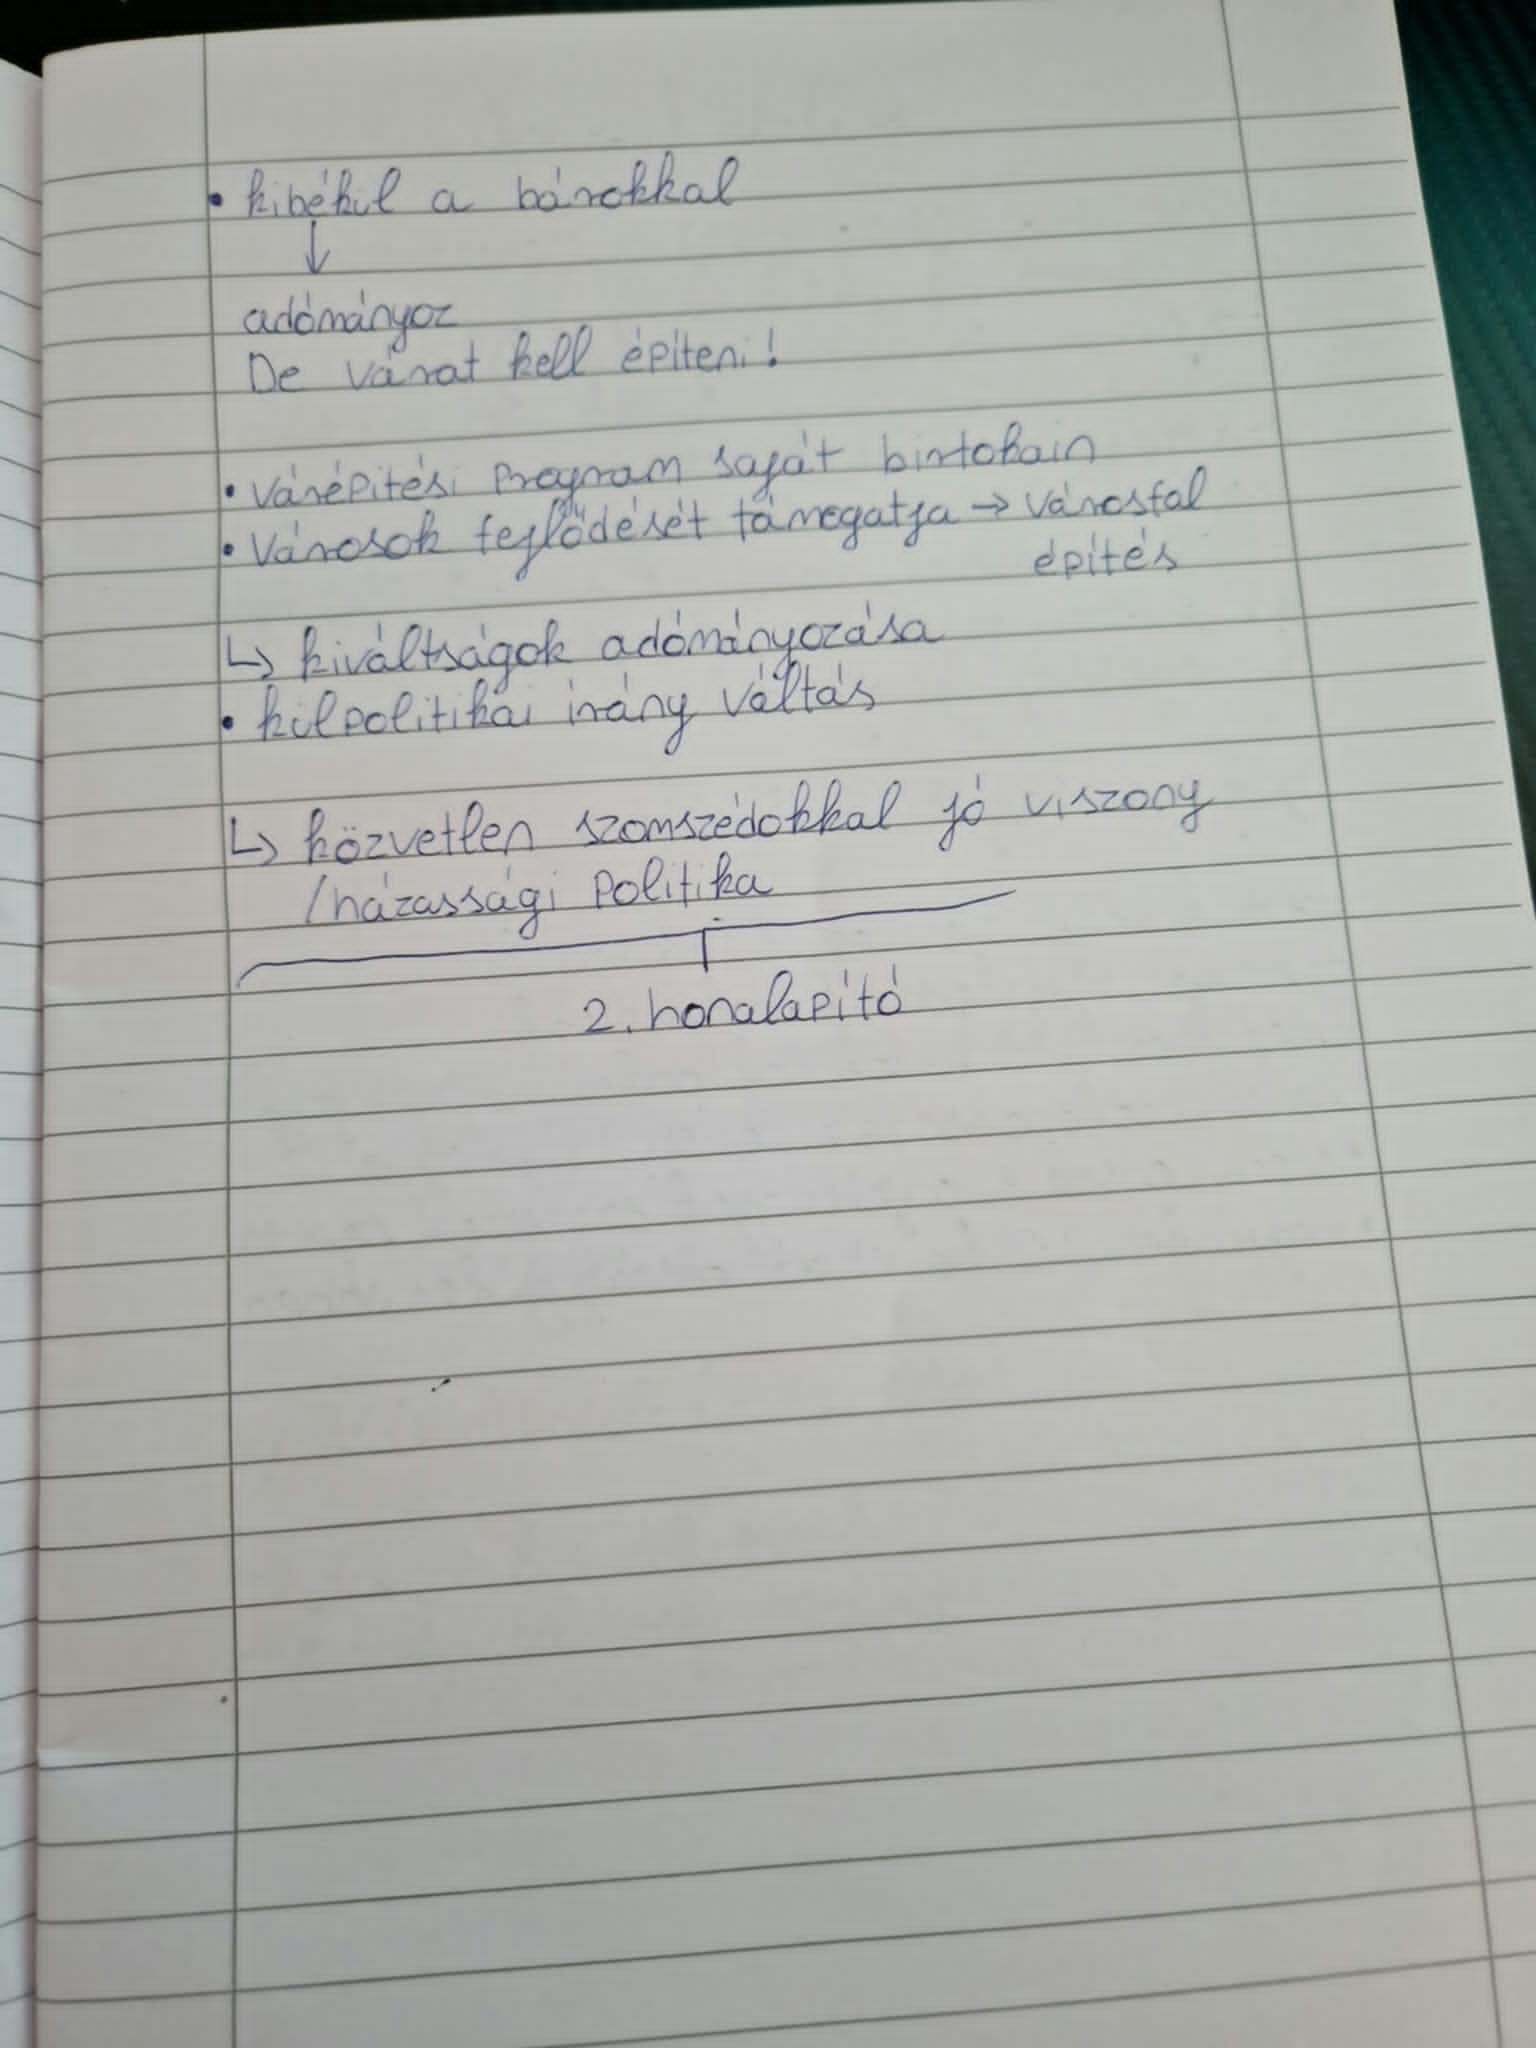 • kibékül a bárokkal
↓
adómányoz
De várat kell építeni!
• várépítési program saját birtokain
• városok fejlődését támogatja → városfal
építés
↳ kiváltságok adómányozása
• külpolitikai irány váltás
↳ közvetlen szomszédokkal jó viszony
/házassági politika
2. honalapító